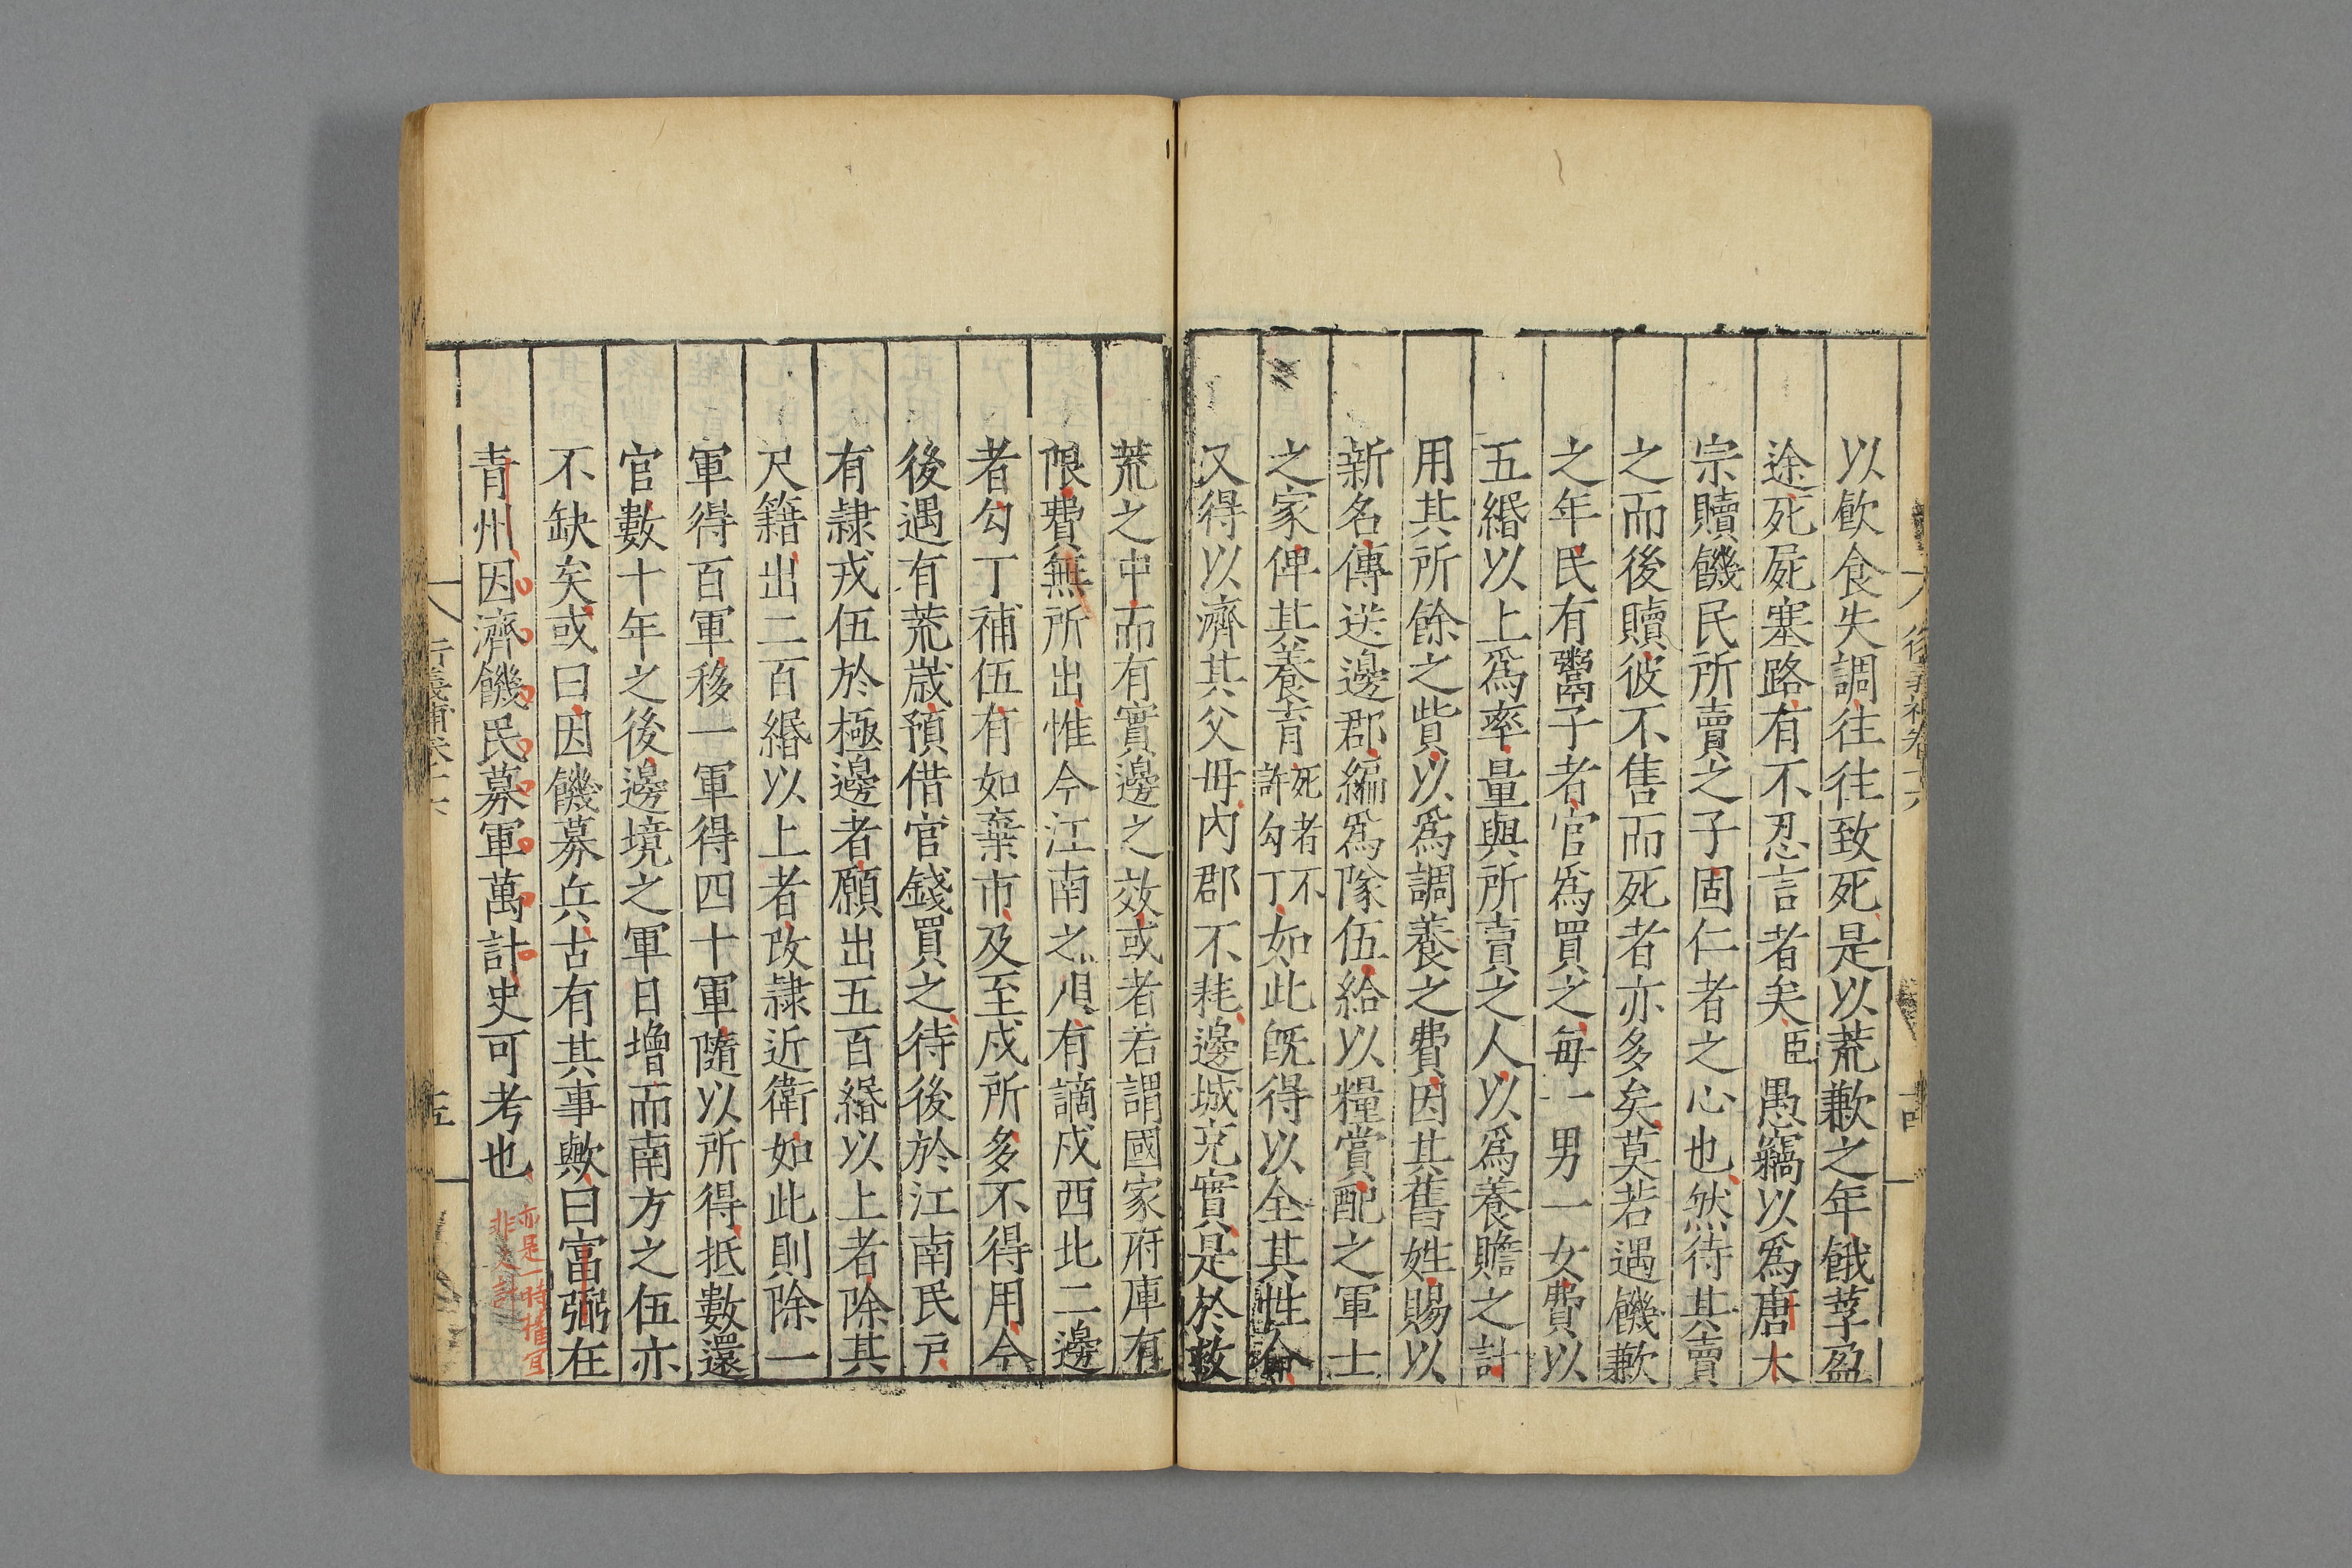 以飲食失調往往致死是以荒歉之年餓莩盈
途死屍塞路有不忍言者矣臣愚竊以爲唐太
宗贖饑民所賣之子固仁者之心也然待其賣
之而後贖彼不售而死者亦多矣莫若遇饑歉
之年民有鬻子者官爲買之每一男一女費以
五緡以上爲率量與所賣之人以爲養贍之計
用其所餘之貲以爲調養之費因其舊姓賜以
新名傳送邊郡編爲隊伍給以糧賞配之軍士
之家俾其養育死者不許勾丁如此旣得以全其性命
又得以濟其父母內郡不耗邊城充實是於救
荒之中而有實邊之效或者若謂國家府庫有
限費無所出惟今江南之人有謫戍西北二邊
者勾丁補伍有如棄市及至戍所多不得用今
後遇有荒歲預借官錢買之待後於江南民戶
有隷戎伍於極邊者願出五百緡以上者除其
尺籍出二百緡以上者攺隷近衛如此則除一
軍得百軍移一軍得四十軍隨以所得抵數還
官數十年之後邊境之軍日增而南方之伍亦
不缺矣或曰因饑募兵古有其事歟曰富弼在
青州因濟饑民募軍萬計史可考也
亦是一時權宜
非久計